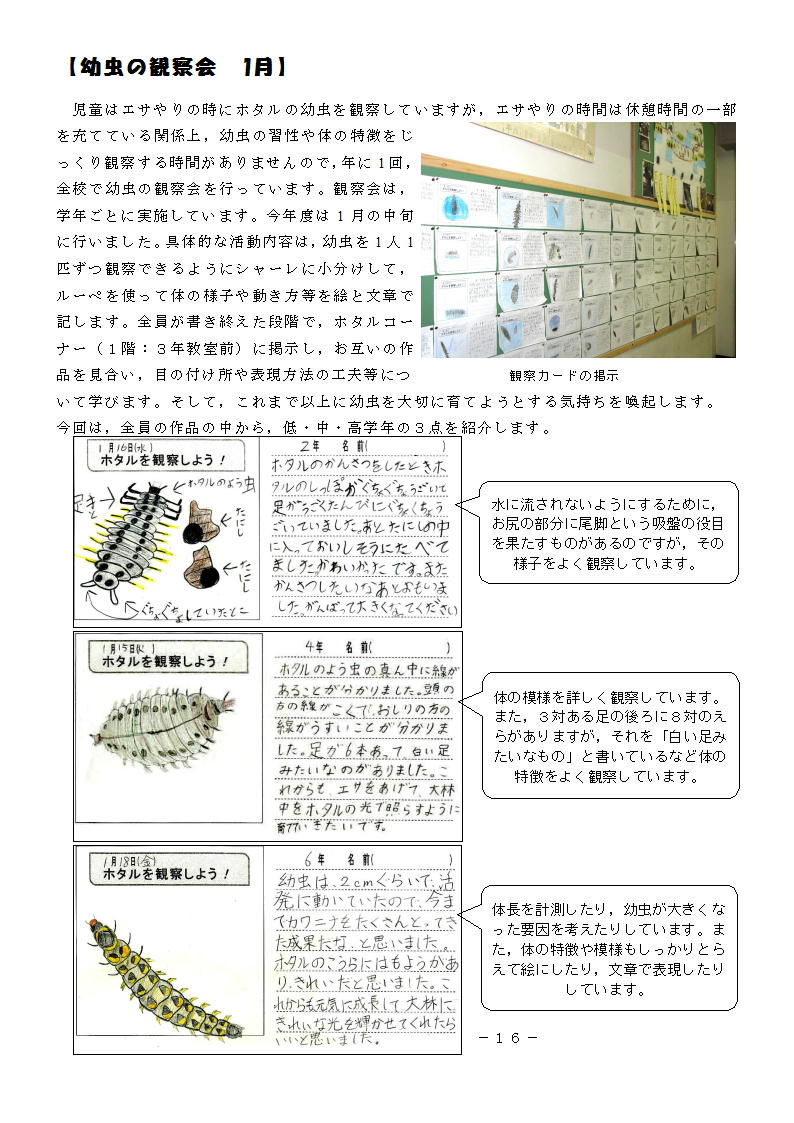 【幼虫の観察会　1月】
児童はエサやりの時にホタルの幼虫を観察していますが，エサやりの時間は休憩時間の一部
を充てている関係上，幼虫の習性や体の特徴をじ
っくり観察する時間がありませんので，年に１回，
全校で幼虫の観察会を行っています。観察会は，
学年ごとに実施しています。今年度は１月の中旬
に行いました。具体的な活動内容は，幼虫を１人１
匹ずつ観察できるようにシャーレに小分けして，
ルーペを使って体の様子や動き方等を絵と文章で
記します。全員が書き終えた段階で，ホタルコー
ナー（１階：３年教室前）に掲示し，お互いの作
品を見合い，目の付け所や表現方法の工夫等につ
いて学びます。そして，これまで以上に幼虫を大切に育てようとする気持ちを喚起します。
今回は，全員の作品の中から，低・中・高学年の３点を紹介します。
観察カードの掲示
1月16日(水)
ホタルを観察しよう！
ホタルのよう虫
足き
たにし
たにし
ぐちょぐちょしていたとこ
2年　名前(　　　)
ホタルのかんさつをしたときホ
タルのしっぽがぐちょぐちょうごいて
足がうごくたんびにぐちょぐちょう
ごいていました。あとたにしの中
に入っておいしそうにたべて
ました。かわいかったです。また
かんさつしたいなあとおもいま
した。がんばって大きくなってください
水に流されないようにするために，
お尻の部分に尾脚という吸盤の役目
を果たすものがあるのですが，その
様子をよく観察しています。
1月15日(火)
ホタルを観察しよう！
4年　名前(　　　)
ホタルのよう虫の真ん中に線が
あることが分かりました。頭の
方の線がこくて、おしりの方の
線がうすいことが分かりま
した。足が6本あって白い足
みたいなのがありました。こ
れからも、エサをあげて、大林
中をホタルの光で照らすように
育てていきたいです。
体の模様を詳しく観察しています。
また，３対ある足の後ろに８対のえ
らがありますが，それを「白い足み
たいなもの」と書いているなど体の
特徴をよく観察しています。
1月18日(金)
ホタルを観察しよう！
6年　名前(　　　)
幼虫は、2cmぐらいで、活
発に動いていたので、今ま
でカワニナをたくさんとってき
た成果だな、と思いました。
ホタルのこうらにはもようがあ
り、きれいだと思いました。こ
れからも元気に成長して、大林に、
きれいな光を輝かせてくれたら
いいと思いました。
体長を計測したり，幼虫が大きくな
った要因を考えたりしています。ま
た，体の特徴や模様もしっかりとら
えて絵にしたり，文章で表現したり
しています。
－１６－